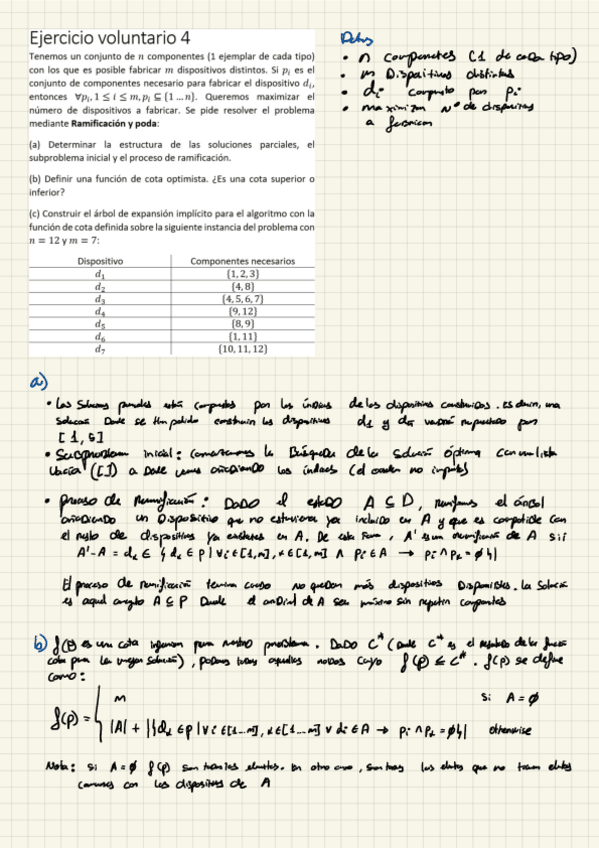 Ejercicio voluntario 4
Tenemos un conjunto de n componentes (1 ejemplar de cada tipo)
con los que es posible fabricar m dispositivos distintos. Si pᵢ es el
conjunto de componentes necesario para fabricar el dispositivo dᵢ,
entonces ∀pᵢ, 1 ≤ i ≤ m, pᵢ ⊆ {1 … n}. Queremos maximizar el
número de dispositivos a fabricar. Se pide resolver el problema
mediante Ramificación y poda:
(a) Determinar la estructura de las soluciones parciales, el
subproblema inicial y el proceso de ramificación.
(b) Definir una función de cota optimista. ¿Es una cota superior o
inferior?
(c) Construir el árbol de expansión implícito para el algoritmo con la
función de cota definida sobre la siguiente instancia del problema con
n = 12 y m = 7:
Dispositivo Componentes necesarios
d₁ {1, 2, 3}
d₂ {4, 8}
d₃ {4, 5, 6, 7}
d₄ {9, 12}
d₅ {8, 9}
d₆ {1, 11}
d₇ {10, 11, 12}
Datos
• n componentes (1 de cada tipo)
• m Dispositivos distintos
• dᵢ compuesto por pᵢ
• maximizar Nº de dispositivos
a fabricar
a)
• Las Soluciones parciales están compuestas por los índices de los dispositivos construidos. Es decir, una
solución Donde se han podido construir los dispositivos d₁ y d₅ vendrá representada por
[1, 5]
• Subproblema inicial: comenzamos la Búsqueda de la Solución óptima con una lista
vacía ([]) a Donde vamos añadiendo los índices (el orden no importa)
• proceso de Ramificación: DADO el estado A ⊆ D, ramificamos el árbol
añadiendo un Dispositivo que no estuviera ya incluido en A y que es compatible con
el resto de dispositivos ya existentes en A. De esta forma, A' es una ramificación de A sii
A'-A = dₖ ∈ { dₖ ∈ p | ∀ i ∈ [1,m], k ∈ [1,m] ∧ pᵢ ∈ A → pᵢ ∧ pₖ = ∅ }|
El proceso de ramificación termina cuando no quedan más dispositivos Disponibles. La Solución
es aquel conjunto A ⊆ P Donde el cardinal de A sea máximo sin repetir componentes
b) f(p) es una cota inferior para nuestro problema. DADO C* (donde C* es el resultado de la función
cota para la mejor solución), podemos podar aquellos nodos cuyo f(p) ≤ C*. f(p) se define
como:
m si A = ∅
f(p) = { |A| + |{dₖ ∈ p | ∀ i ∈ [1...m], k ∈ [1...m] ∨ dᵢ ∈ A → pᵢ ∧ pₖ = ∅}| otherwise
Nota: Si A = ∅ f(p) son todos los elementos. En otro caso, son todos los elementos que no tienen elementos
comunes con los dispositivos de A